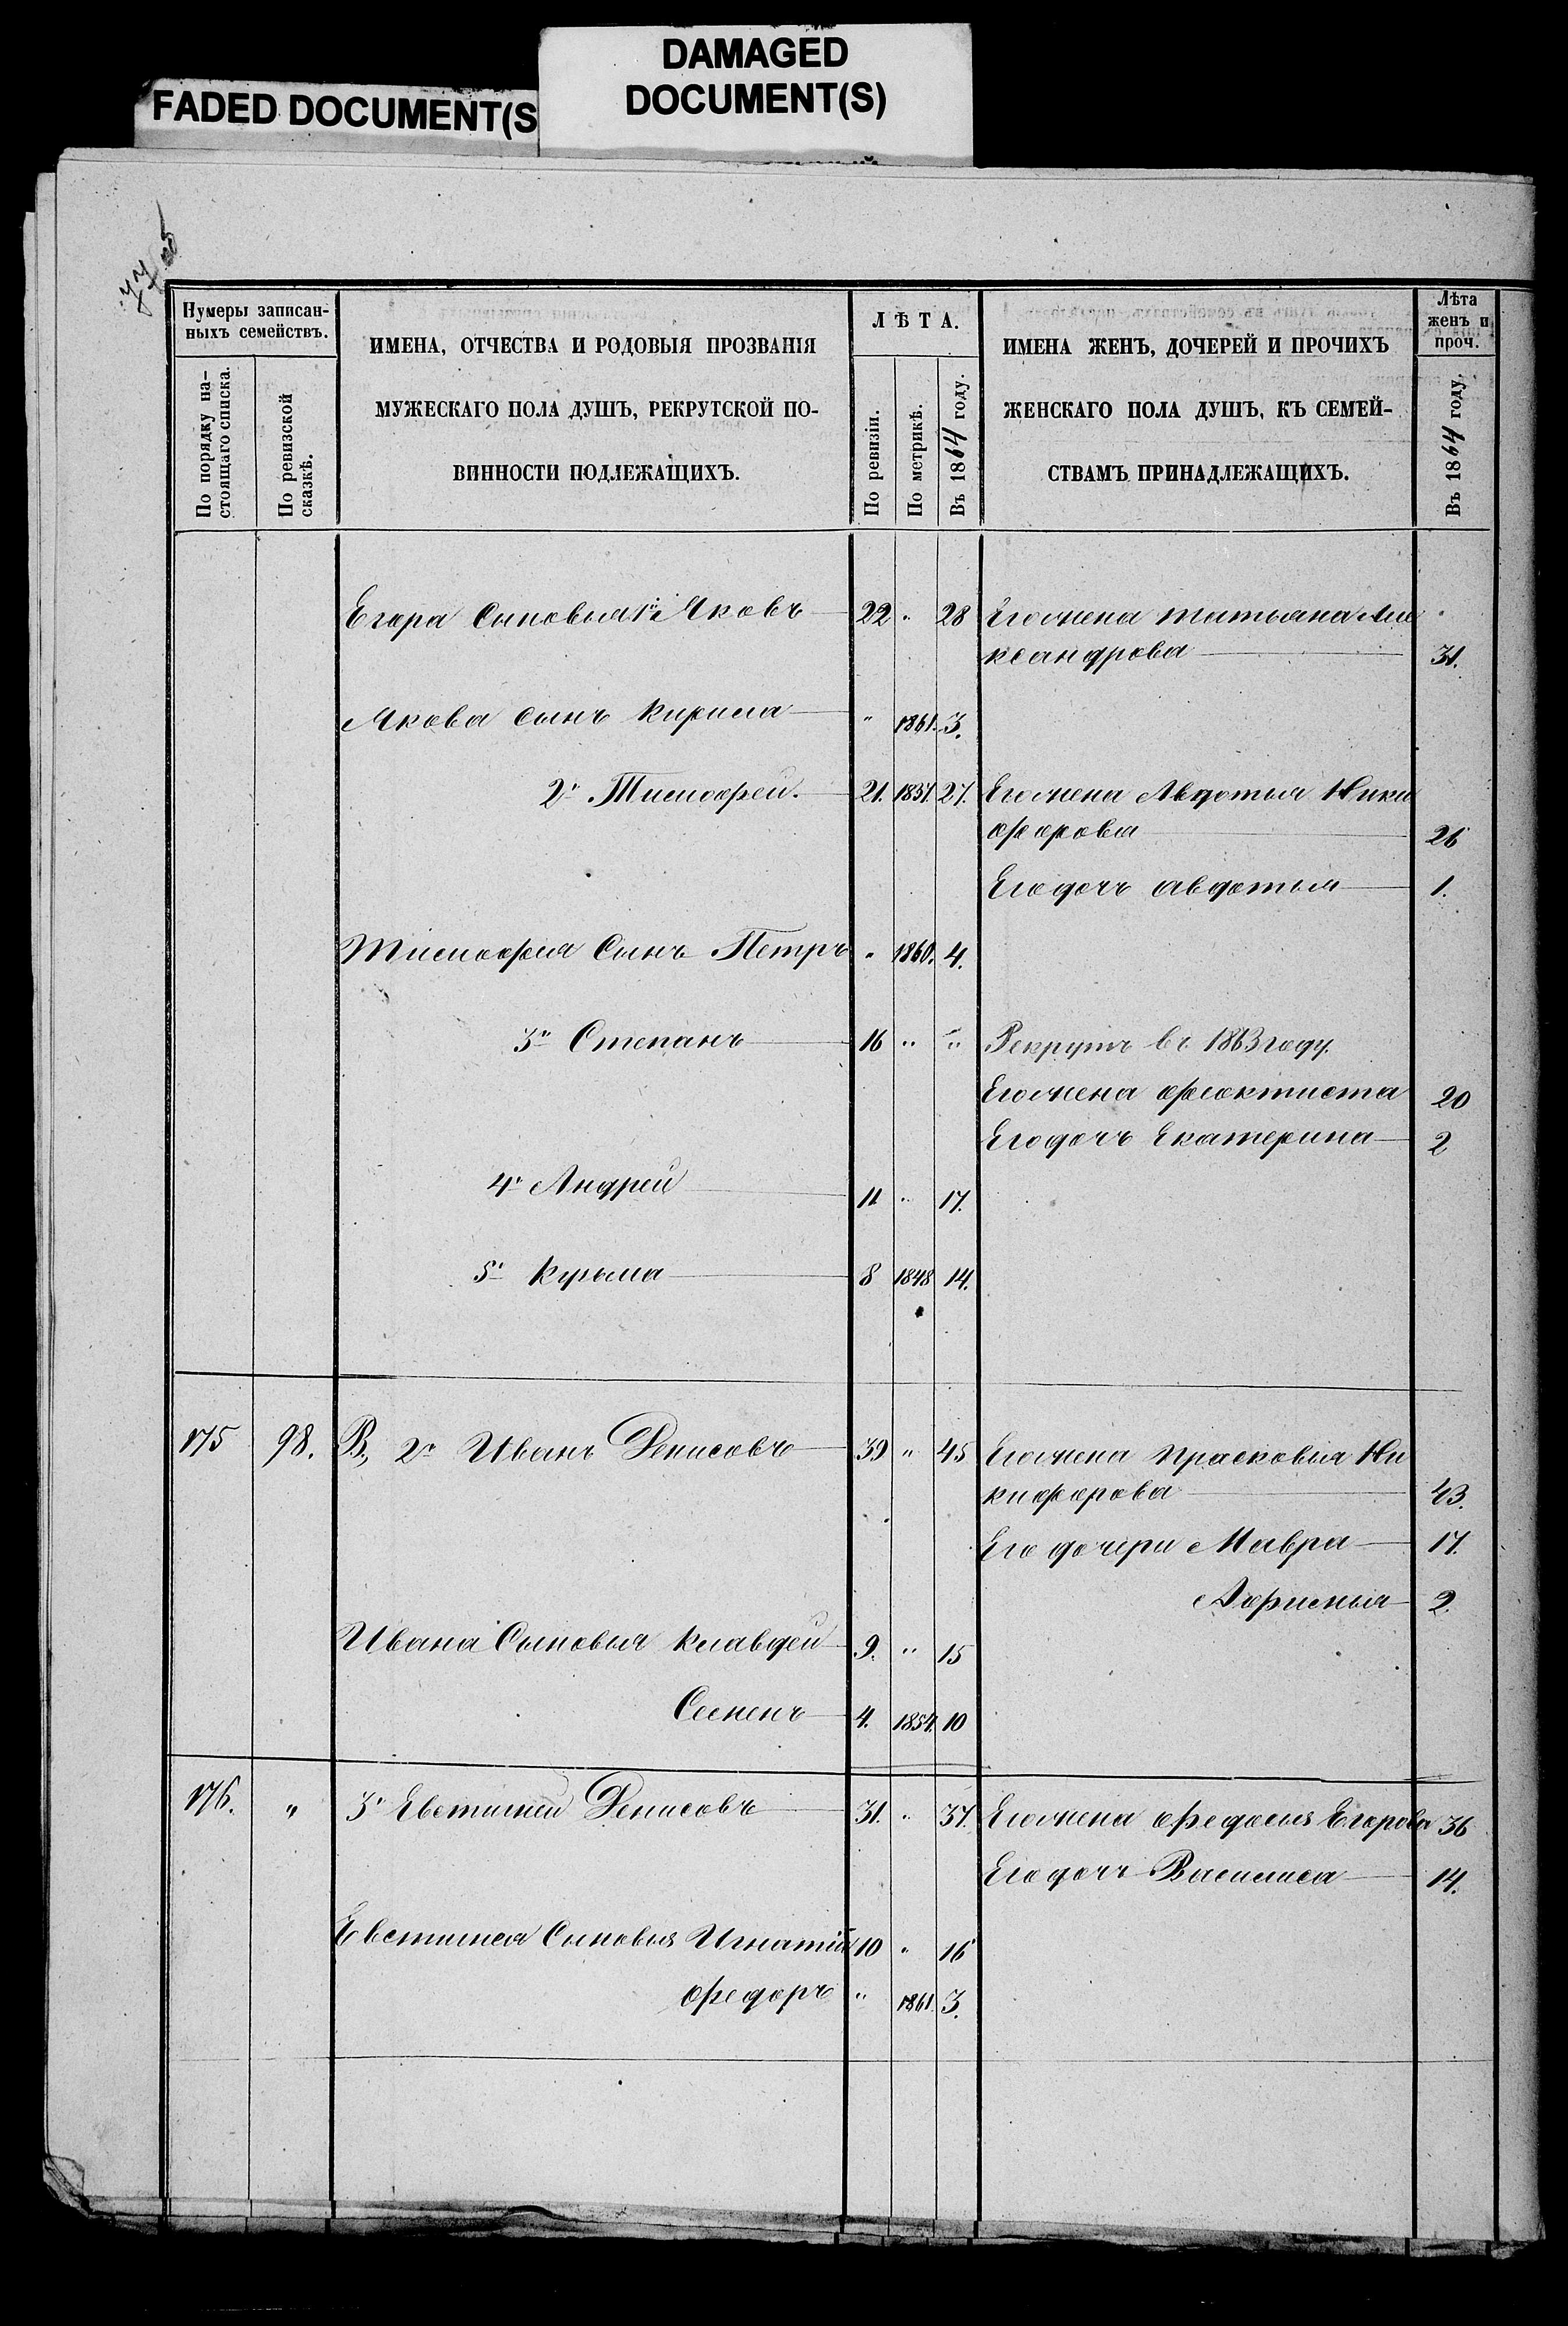 DAMAGED
DOCUMENT(S)
FADED DOCUMENT(S
77 об
Нумеры записан-
ныхъ семействъ.
По порядку на-
стоящаго списка.
По ревизской
сказкѣ.
ИМЕНА, ОТЧЕСТВА И РОДОВЫЯ ПРОЗВАНІЯ
МУЖЕСКАГО ПОЛА ДУШЪ, РЕКРУТСКОЙ ПО-
ВИННОСТИ ПОДЛЕЖАЩИХЪ.
ЛѢТА.
По ревизіи.
По метрикѣ.
Въ 1864 году.
ИМЕНА ЖЕНЪ, ДОЧЕРЕЙ И ПРОЧИХЪ
ЖЕНСКАГО ПОЛА ДУШЪ, КЪ СЕМЕЙ-
СТВАМЪ ПРИНАДЛЕЖАЩИХЪ.
Лѣта
женъ и
проч.
Въ 1864 году.
Егора Сыновья 1й Яковъ 22 " 28 Его жена татьяна Але
ксандрова 31.
Якова сынъ Кирила " 1861. 3.
2й Тимофей. 21. 1837. 27. Его жена Авдотья Ники
форова 26
Его дочь авдотья 1.
Тимофея Сынъ Петръ " 1860. 4.
3й Степанъ 16 " " Рекрутъ въ 1863 году.
Его жена феоктиста 20
Его дочь Екатерина 2
4й Андрей 11 " 17.
5й Кузьма 8 1848 14.
175 98. В, 2й Иванъ Денисовъ 39 " 45 Его жена Прасковья Ни
кифорова 43.
Его дочери Мавра 17.
Афимья 2.
Ивана Сыновья Клавдей 9. " 15
Семенъ 4. 1854. 10
176. " 3й Евстигней Денисовъ 31. " 37. Его жена федосья Егорова 36
Его дочь Василиса 14.
Евстигнея Сыновья Игнатій 10 " 16
федоръ " 1861. 3.